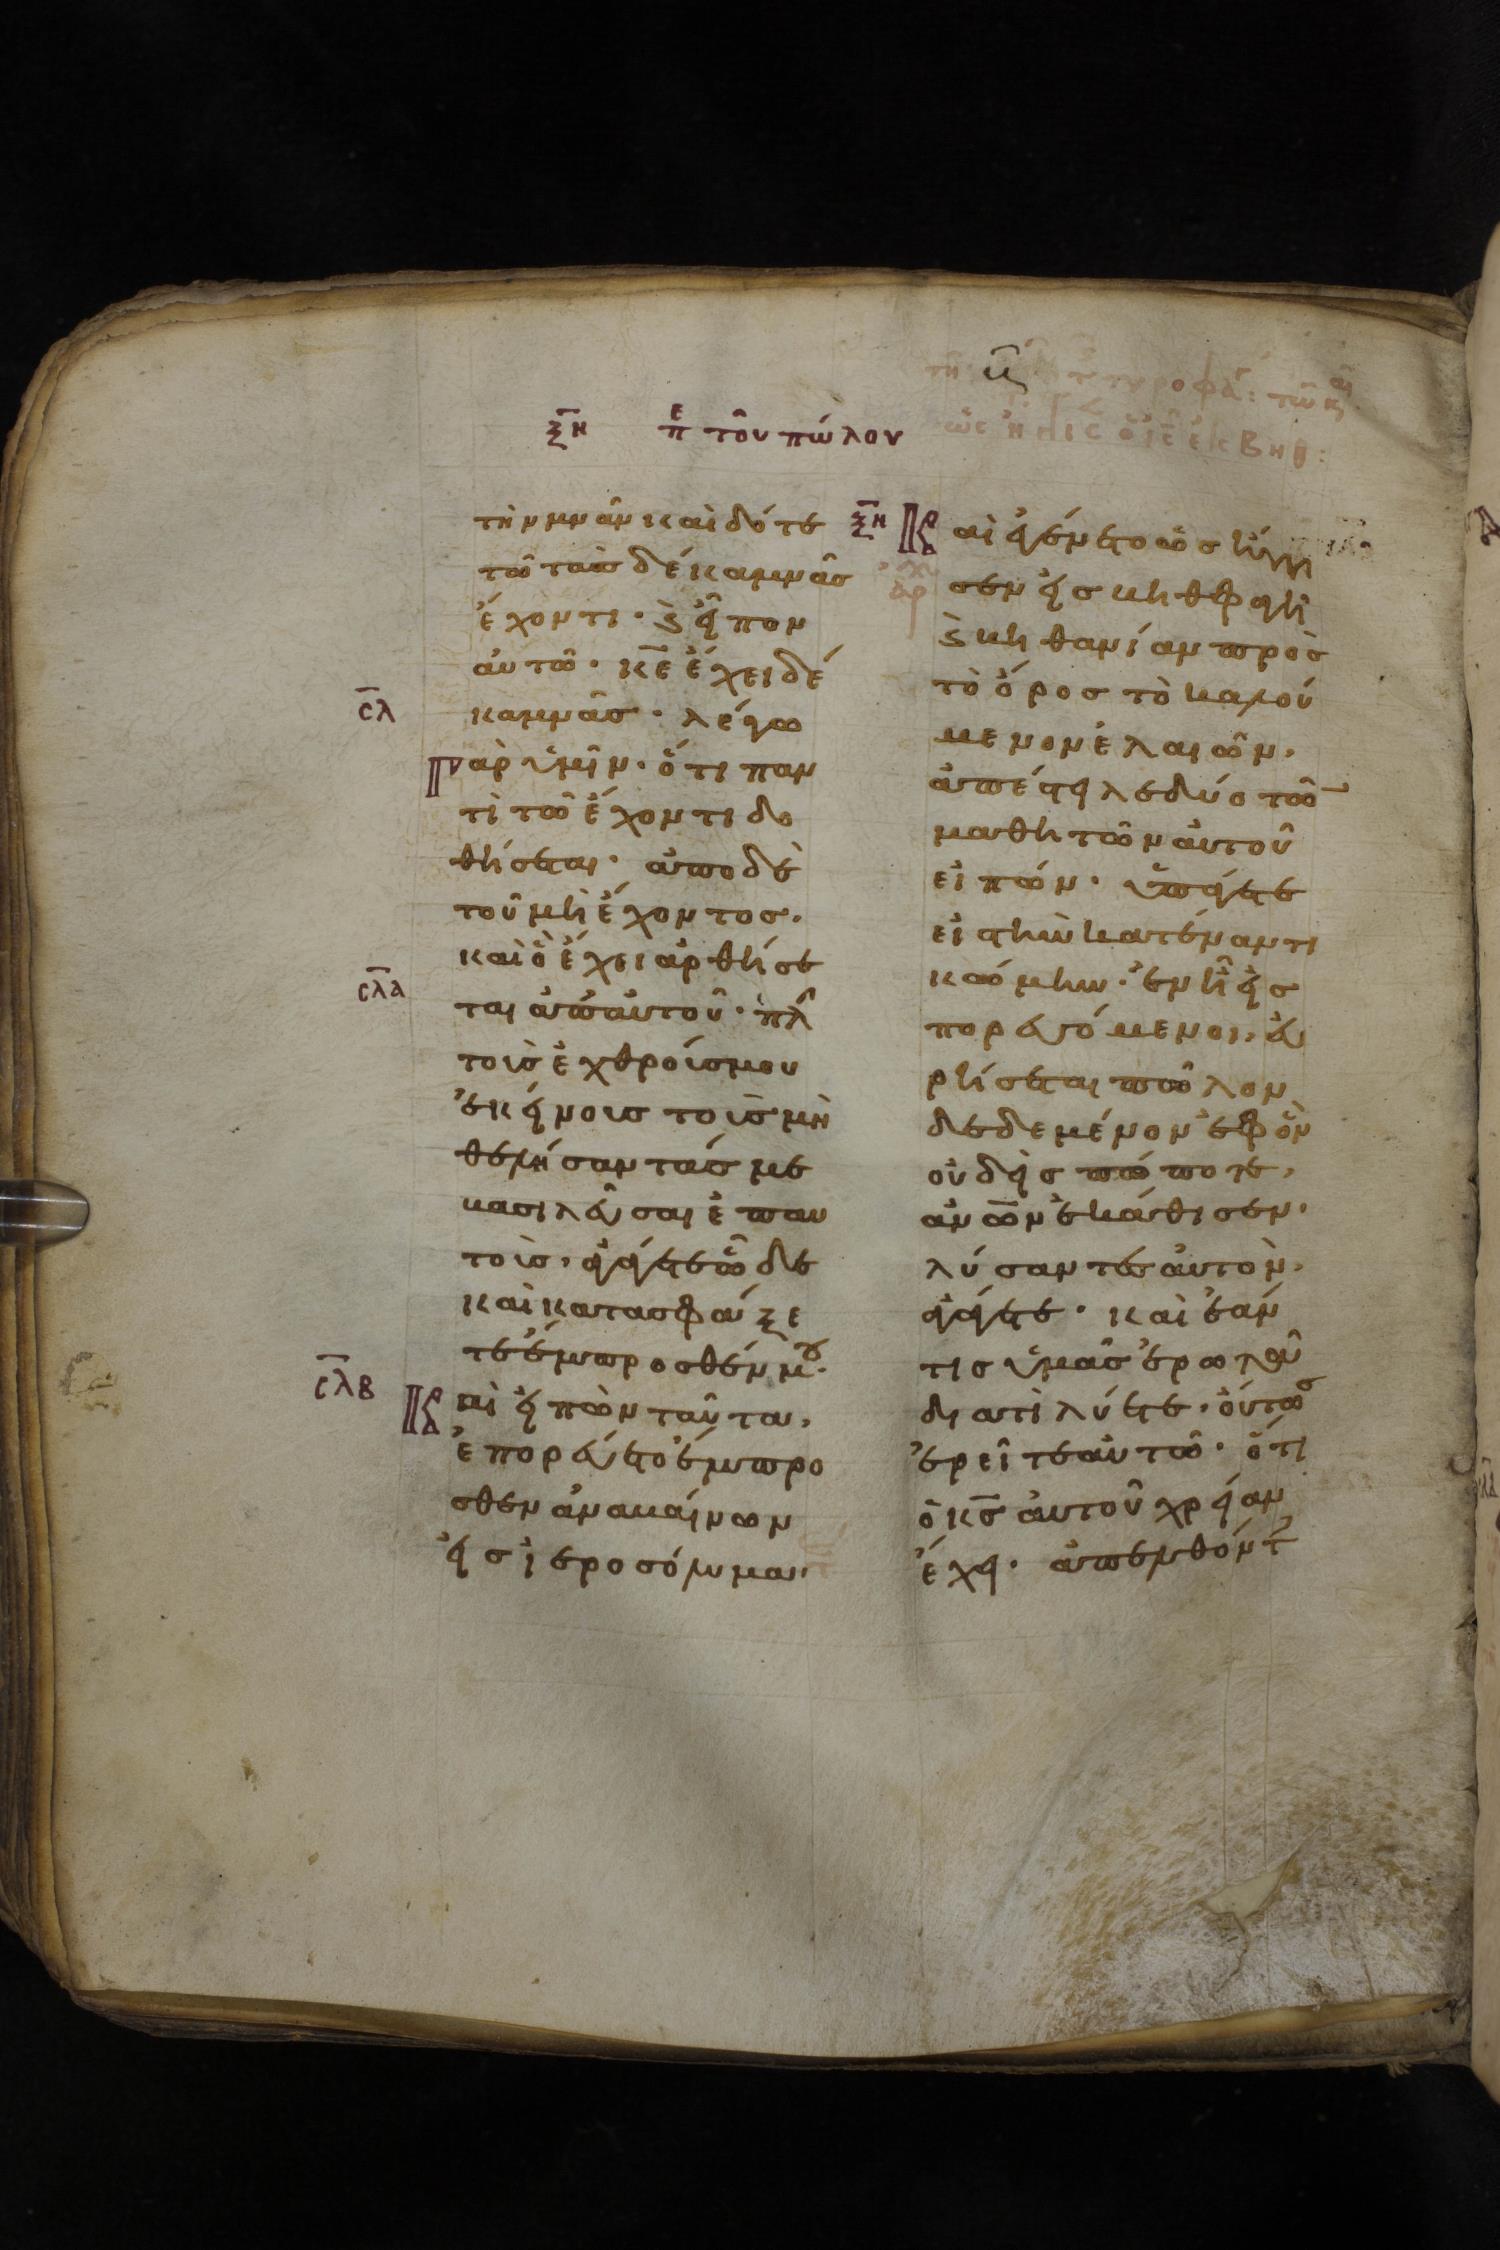 ξη πε τὸν πώλον
τὴν μνᾶν καὶ δότε
τῶ τὰσ δέκα μνᾶσ
ἔχοντι· ϗ εἶπον
αὐτῶ· κε ἔχει δέ
σλ
κα μνᾶσ· λέγω
γὰρ ὑμῖν· ὅτι παν
τὶ τῶ ἔχοντι δο
θήσεται· ἀπο δὲ
τοῦ μὴ ἔχοντοσ.
καὶ ὃ ἔχει ἀρθήσε
σλα
ται ἀπ αὐτοῦ· πλ
τοὺσ ἐχθρούσ μου
ἐκείνουσ τοὺσ μὴ
θελήσαντάσ με
βασιλεῦσαι ἐπ αυ
τοὺσ, ἀγάγετε ὧδε
καὶ κατασφάξε
τε ἔμπροσθέν μου·
σλβ
Καὶ εἰπὼν ταῦτα,
ἐπορεύετο ἔμπρο
σθεν ἀναβαίνων
εἰσ ἱεροσόλυμα·
τυροφα:
ξη
Καὶ ἐγένετο ὡσ ἤγγι
αρ
σεν εἰσ βηθφαγὴ
ϗ βηθανίαν πρὸσ
τὸ ὄροσ τὸ καλού
μενον ἐλαιῶν,
ἀπέστειλε δύο τῶ
μαθητῶν αὐτοῦ
εἰπών· ὑπάγετε
εἰσ τὴν κατέναντι
κώμην· ἐν ἧ εἰσ
πορευόμενοι, εὑ
ρήσεται πῶλον
δεδεμένον ἐφ ὃν
οὐδεὶσ πώποτε,
ανων ἐκάθισεν·
λύσαντεσ αὐτὸν,
ἀγάγετε· καὶ ἐάν
τισ ὑμᾶσ ἐρωτᾶ
διατὶ λύετε· οὕτωσ
ἐρεῖτε αὐτῶ· ὅτι
ὁ κσ αὐτοῦ χρείαν
ἔχει· ἀπελθόντ